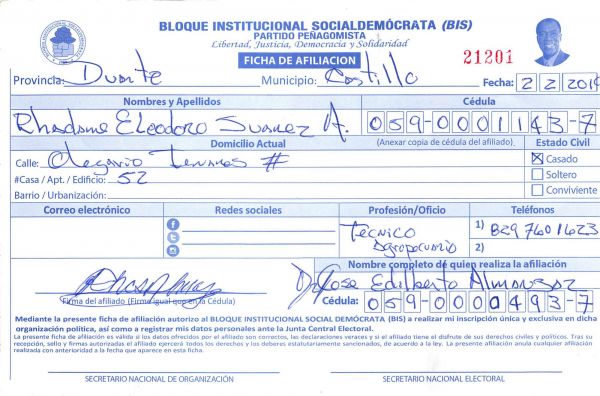 BLOQUE INSTITUCIONAL SOCIALDEMÓCRATA (BIS)
PARTIDO PEÑAGOMISTA
Libertad, Justicia, Democracia y Solidaridad
FICHA DE AFILIACION
21201
Provincia: Duarte Municipio: Castillo Fecha: 2 2 2014
Nombres y Apellidos Cédula
Rhadame Eleodoro Suarez A. 059-0001143-7
Domicilio Actual (Anexar copia de cédula del afiliado) Estado Civil
Calle: Olegario Tenares #
#Casa / Apt. / Edificio: 52
Barrio / Urbanización:
Casado
Soltero
Conviviente
Correo electrónico Redes sociales Profesión/Oficio Teléfonos
Tecnico Agropecuario
1) 829 760 1623
2)
Nombre completo de quien realiza la afiliación
Dr. Jose Edilberto Almanzar
Firma del afiliado (Firme igual que en la Cédula)
Cédula: 059-0000493-7
Mediante la presente ficha de afiliación autorizo al BLOQUE INSTITUCIONAL SOCIAL DEMÓCRATA (BIS) a realizar mi inscripción única y exclusiva en dicha
organización política, así como a registrar mis datos personales ante la Junta Central Electoral.
La presente ficha de afiliación es válida si los datos ofrecidos por el afiliado son correctos, las declaraciones veraces y si el afiliado tiene el disfrute de sus derechos civiles y políticos. Tras su
recepción, sello y firmas autorizadas el afiliado ejercerá todos los derechos y los deberes estatutariamente sancionados, de acuerdo a la ley. La presente afiliación anula cualquier afiliación
realizada con anterioridad a la fecha que aparece en esta ficha.
SECRETARIO NACIONAL DE ORGANIZACIÓN SECRETARIO NACIONAL ELECTORAL